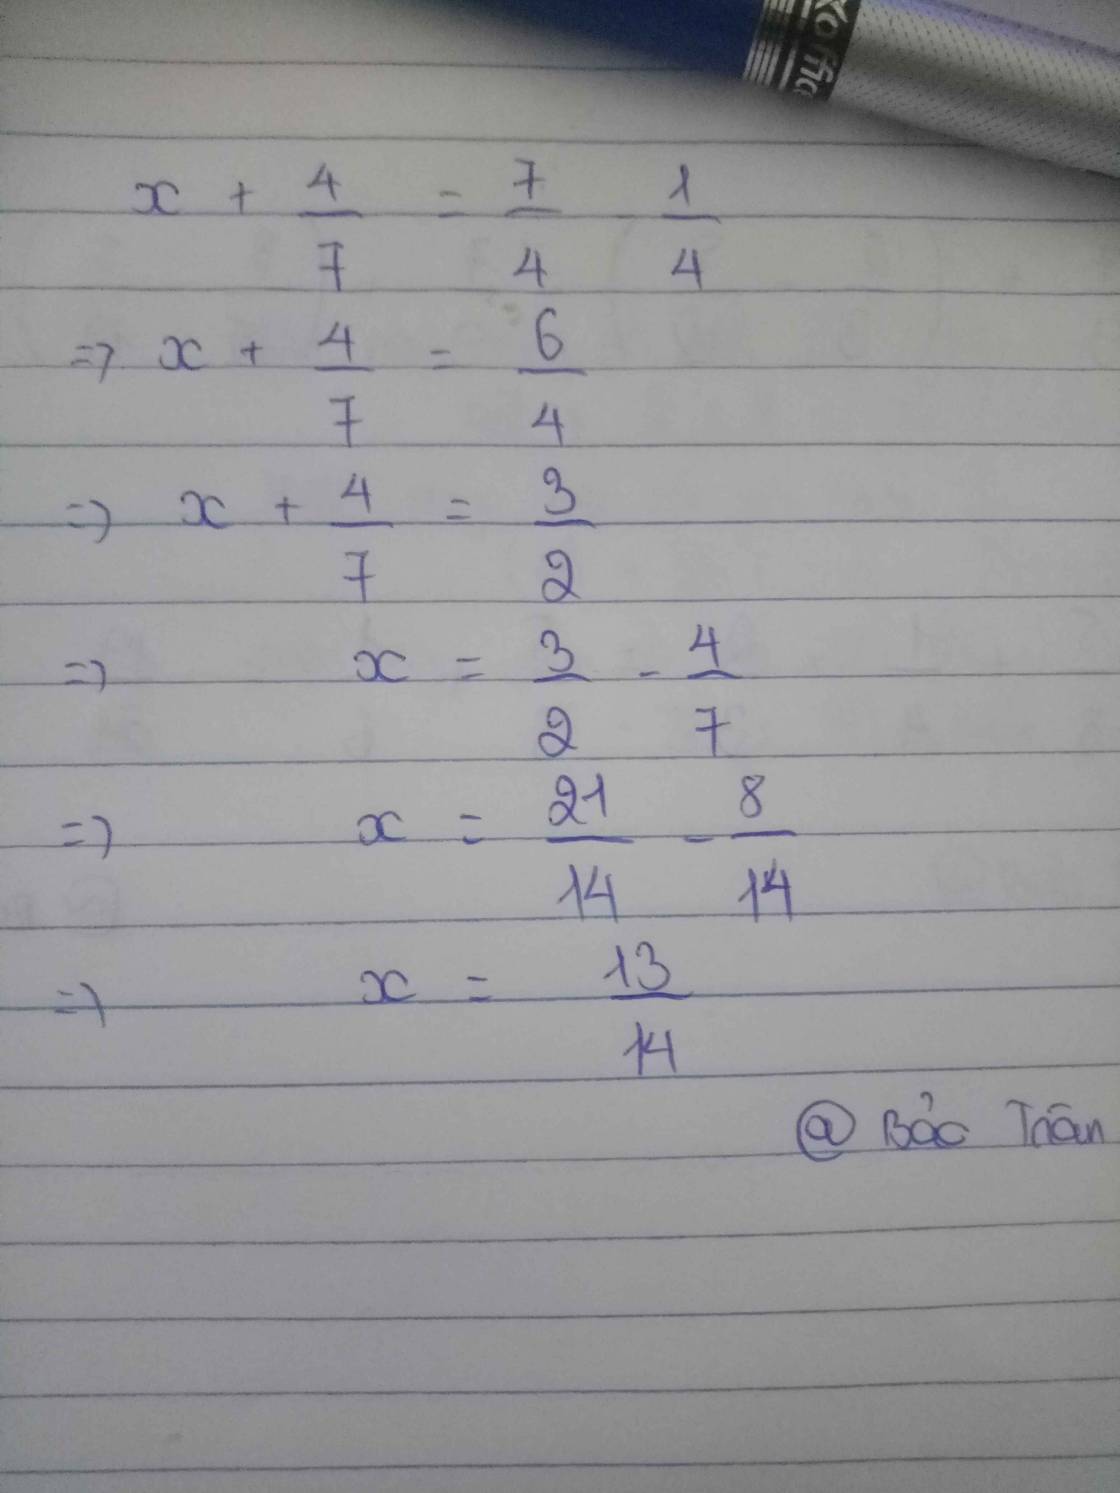 x + 4/7 = 7/4 - 1/4
=> x + 4/7 = 6/4
=> x + 4/7 = 3/2
=> x = 3/2 - 4/7
=> x = 21/14 - 8/14
=> x = 13/14
@ Bảo Trân